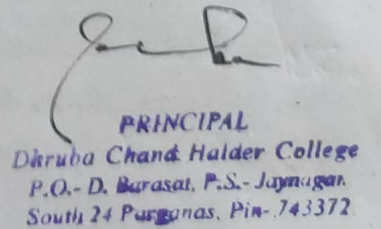 PRINCIPAL
Dhruba Chand Halder College
P.O.- D. Barasat, P.S.- Jaynagar.
South 24 Parganas, Pin- 743372